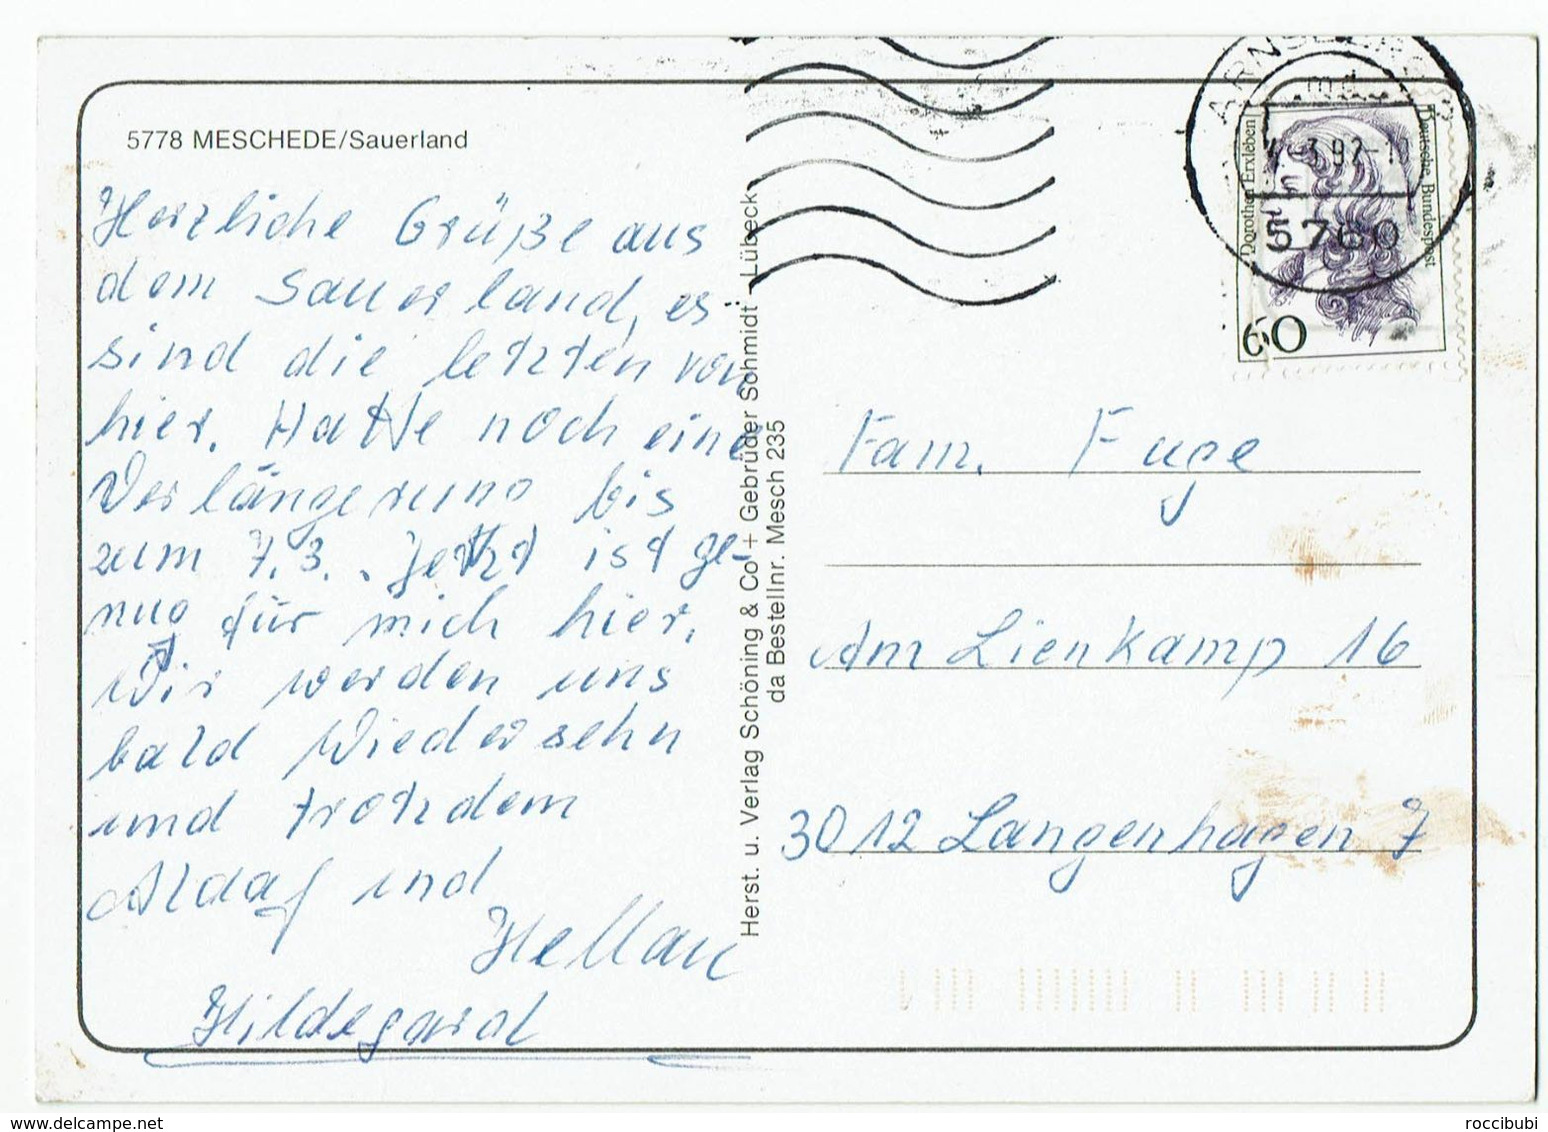 5778 MESCHEDE/Sauerland
Herzliche Grüße aus
dem Sauerland, es
sind die letzten von
hier. Hatte noch eine
Verlängerung bis
zum 7.3.. Jetzt ist ge-
nug für mich hier.
Wir werden uns
bald Wiedersehn
und trotzdem
Alaaf und
Hellau
Hildegard
Herst. u. Verlag Schöning & Co + Gebrüder Schmidt - Lübeck
da Bestellnr. Mesch 235
ARNSBERG
5760
Dorothea Erxleben
Deutsche Bundespost
60
Fam. Fuge
Am Lienkamp 16
3012 Langenhagen 7
delcampe.net
roccibubi